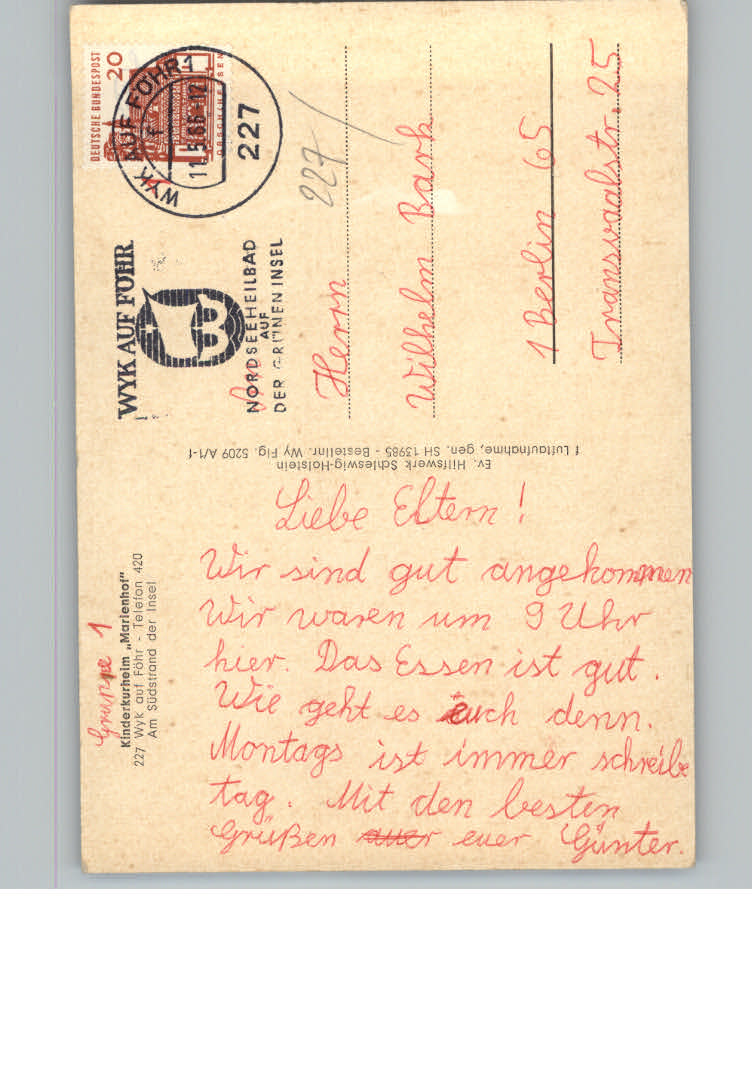 DEUTSCHE BUNDESPOST
20
WYK AUF FÖHR 1
11.5.66
227
WYK AUF FÖHR
NORDSEEHEILBAD
AUF
DER GRÜNEN INSEL
227
Herrn
Wilhelm Bark
1 Berlin 65
Transvaalstr. 25
Ev. Hilfswerk Schleswig-Holstein
f Luftaufnahme, gen. SH 13985 - Bestellnr. Wy Flg. 5209 A/1-f
Gruppe 1
Kinderkurheim „Marienhof"
227 Wyk auf Föhr - Telefon 420
Am Südstrand der Insel
Liebe Eltern!
Wir sind gut angekommen
Wir waren um 9 Uhr
hier. Das Essen ist gut.
Wie geht es euch denn.
Montags ist immer schreibe
tag. Mit den besten
Grüßen euer Günter.